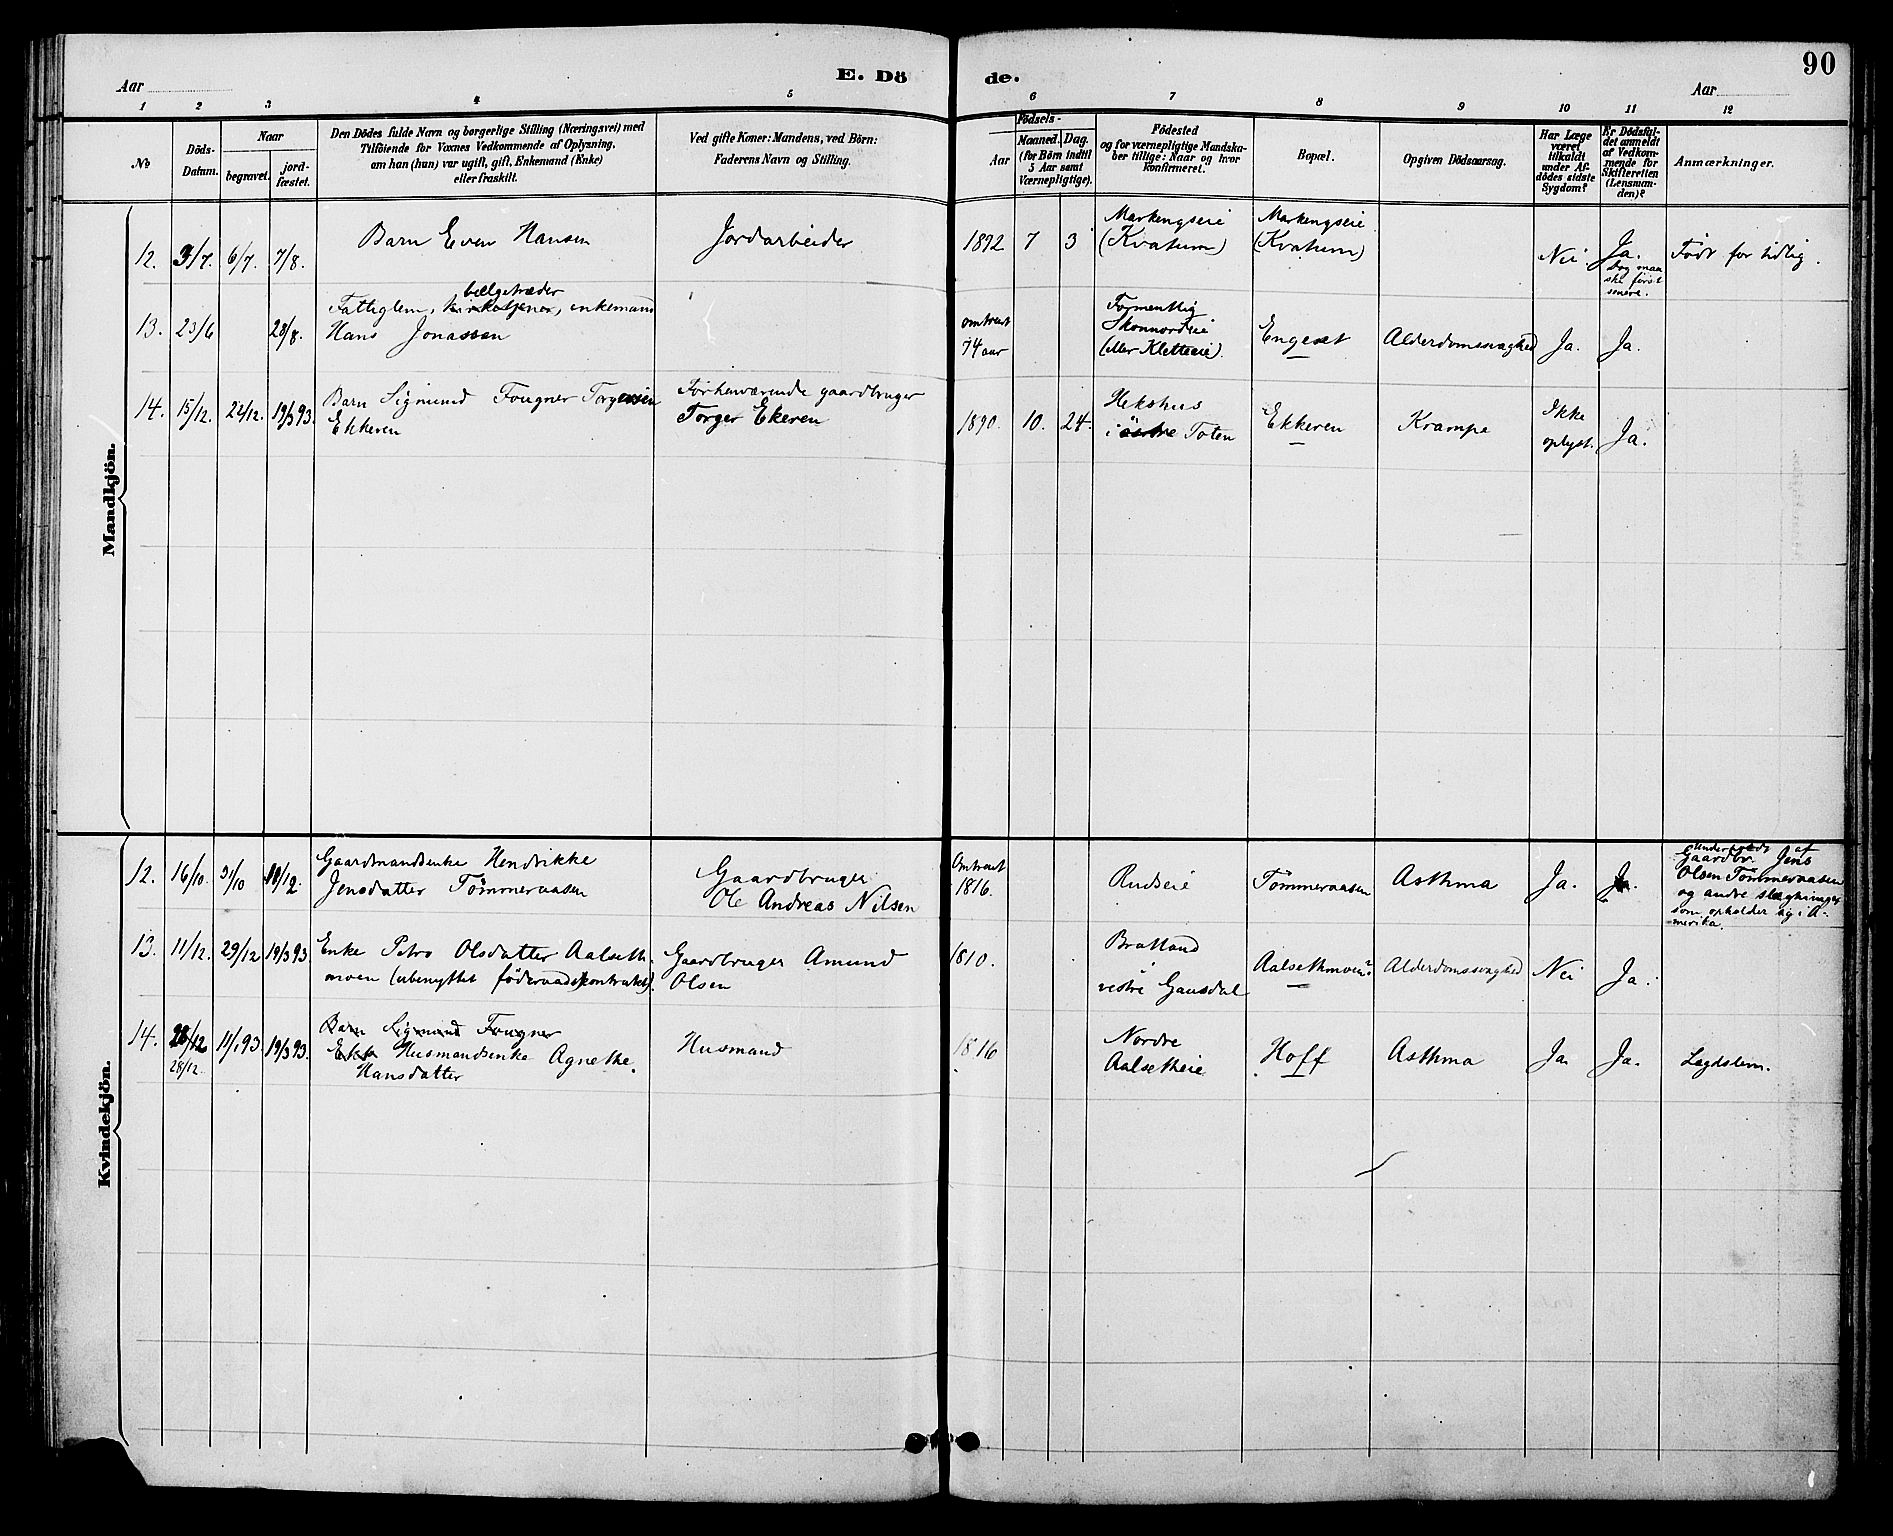 90
E. Dö
de.
Aar
Aar
1 2 3 4 5 6 7 8 9 10 11 12
No
Döds-
Datum.
Naar
begravet.
jord-
fæstet.
Den Dödes fulde Navn og borgerlige Stilling (Næringsvei) med
Tilföiende for Voxnes Vedkommende af Oplysning,
om han (hun) var ugift, gift, Enkemand (Enke)
eller fraskilt.
Ved gifte Koner: Mandens, ved Börn:
Faderens Navn og Stilling.
Födsels-
Aar
Maaned. Dag.
(for Börn indtil
5 Aar samt
Værnepligtige).
Födested
og for værnepligtige Mandska-
ber tillige: Naar og hvor
Konfirmeret.
Bopæl.
Opgiven Dödsaarsag.
Har Læge
været
tilkaldt
under Af-
dödes sidste
Sygdom?
Er Dödsfal-
det anmeldt
af Vedkom-
mende for
Skifteretten
(Lensman-
den)?
Anmærkninger.
Mandkjön.
12. 3/7. 6/7. 7/8.
Barn Even Hansen
Jordarbeider
1892 7 3
Markengseie
(Kvatum)
Markengseie
(Kvatum)
Nei.
Ja.
Dog maa
ske först
senere.
Födt for tidlig.
13. 23/6 28/8.
bælgetræder
Fattiglem, kirketjener, enkemand
Hans Jonassen
omtrent
74 aar
Formentlig
Skonnordeie
(eller Kletteeie).
Engeset
Alderdomssvaghed
Ja. Ja.
14. 15/12. 22/12. 19/3 93.
Barn Sigmund Fougner Torgersen
Ekkeren
Forhenværende gaardbruger
Torger Ekeren
1890. 10. 24.
Hekshus
i östre Toten
Ekkeren
Krampe
Ikke
oplyst.
Ja.
Kvindekjön.
12. 16/10. 31/10 18/12.
Gaardmandsenke Hendrikke
Jensdatter Tömmeraasen
Gaardbruger
Ole Andreas Nilsen
Omtrent
1816.
Rudseie
Tömmeraasen
Asthma
Ja. Ja.
Understöds af
Gaardbr. Jens
Olsen Tömmeraasen
og andre slægtninger
som opholder sig i A-
merika.
13. 11/12. 29/12 19/3 93
Enke Petro Olsdatter Aalseth-
moen (ubenyttet föderaadskontrakt).
Gaardbruger Amund
Olsen
1810.
Brattand
vestre Gausdal
Aalsethmoen
Alderdomssvaghed
Nei Ja.
14. 28/12 11/1 93 19/3 93.
28/12.
Barn Sigmund Fougner
Ekk Husmandsenke Agnethe
Hansdatter
Husmand
1816
Nordre
Aalsetheie
Hoff
Asthma
Ja Ja.
Lægdslem.